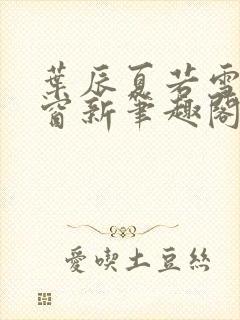 葉辰夏若雪
窗新筆趣閣
愛喫土豆絲